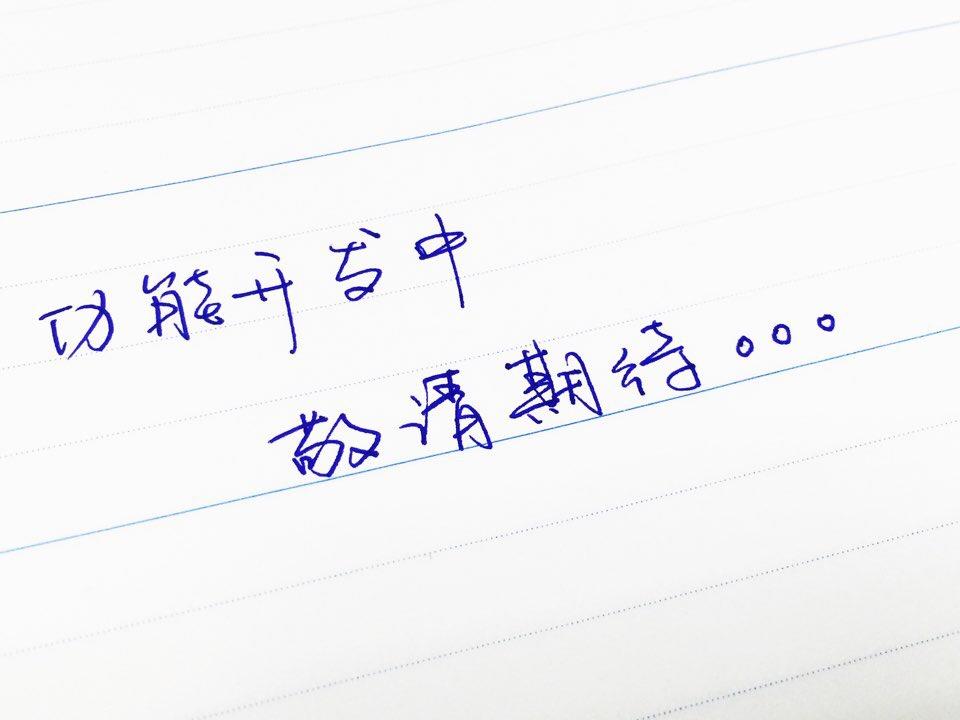 功能开发中
敬请期待。。。